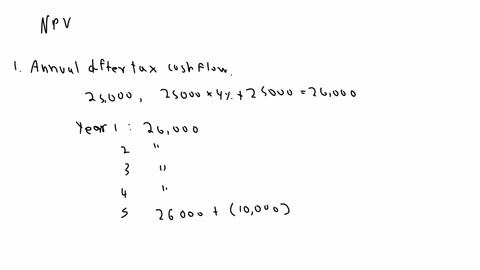 NPV
1. Annual after tax cash flow.
25,000, 25000 * 4% + 25000 = 26,000
Year 1 : 26,000
2 "
3 "
4 "
5 26000 + (10,000)